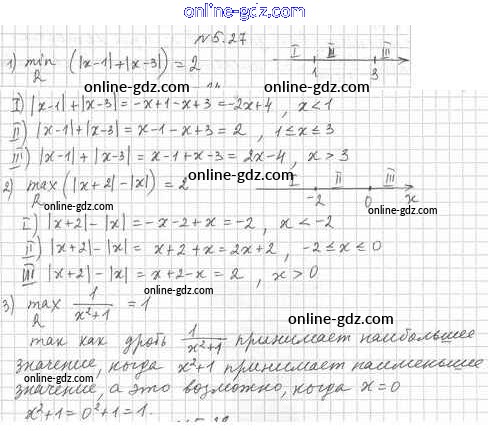 online-gdz.com
№5.27
1) min (|x-1|+|x-3|) = 2
R
I II III
1 3
I) |x-1|+|x-3| = -x+1-x+3 = -2x+4, x<1
online-gdz.com
II) |x-1|+|x-3| = x-1-x+3 = 2, 1≤x≤3
online-gdz.com
III) |x-1|+|x-3| = x-1+x-3 = 2x-4, x>3
2) max (|x+2|-|x|) = 2
R
online-gdz.com
I II III
-2 0 x
online-gdz.com
I) |x+2|-|x| = -x-2+x = -2, x<-2
online-gdz.com
II) |x+2|-|x| = x+2+x = 2x+2, -2≤x≤0
online-gdz.com
III |x+2|-|x| = x+2-x = 2, x>0
3) max 1/(x²+1) = 1
R
online-gdz.com
так как дробь 1/(x²+1) принимает наибольшее
online-gdz.com
значение, когда x²+1 принимает наименьшее
online-gdz.com
значение, а это возможно, когда x=0
x²+1=0²+1=1.
online-gdz.com